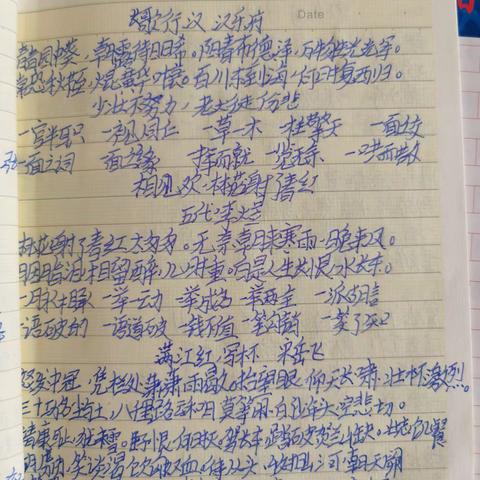 长歌行 汉 汉乐府
Date
青青园中葵，朝露待日晞。阳春布德泽，万物生光辉。
常恐秋节至，焜黄华叶衰。百川东到海，何时复西归。
少壮不努力，老大徒伤悲
一官半职 一视同仁 一草一木 一柱擎天 一面之交
一面之词 一面之缘 一挥而就 一览无余 一哄而散
相见欢·林花谢了春红
五代：李煜
林花谢了春红，太匆匆。无奈朝来寒雨晚来风。
胭脂泪，相留醉，几时重。自是人生长恨水长东。
一举一动 一举成名 一举两全 一派胡言
一语破的 一语道破 一钱不值 一笔勾销 一了百了
满江红·写怀 宋 岳飞
怒发冲冠，凭栏处、潇潇雨歇。抬望眼，仰天长啸，壮怀激烈。
三十功名尘与土，八千里路云和月。莫等闲，白了少年头，空悲切。
靖康耻，犹未雪。臣子恨，何时灭。驾长车，踏破贺兰山缺。壮志饥餐
胡虏肉，笑谈渴饮匈奴血。待从头、收拾旧山河，朝天阙